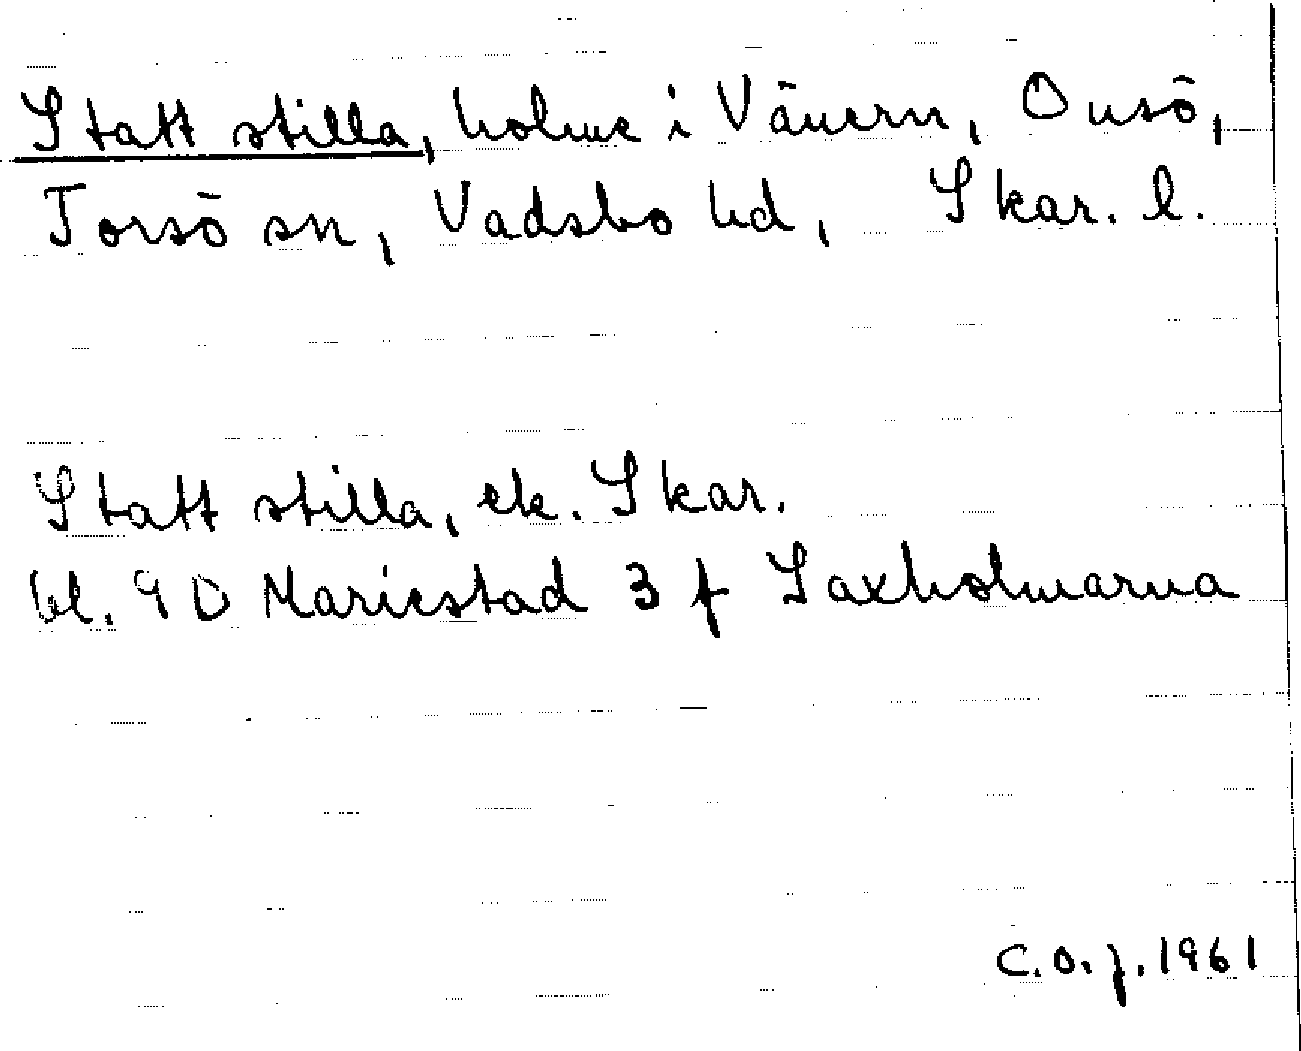 Statt stilla, holme i Vänern, Onsö,
Torsö sn, Vadsbo hd, Skar. l.
Statt stilla, ek. Skar.
bl. 9 D Mariestad 3 f Saxholmarna
C.O.J. 1961